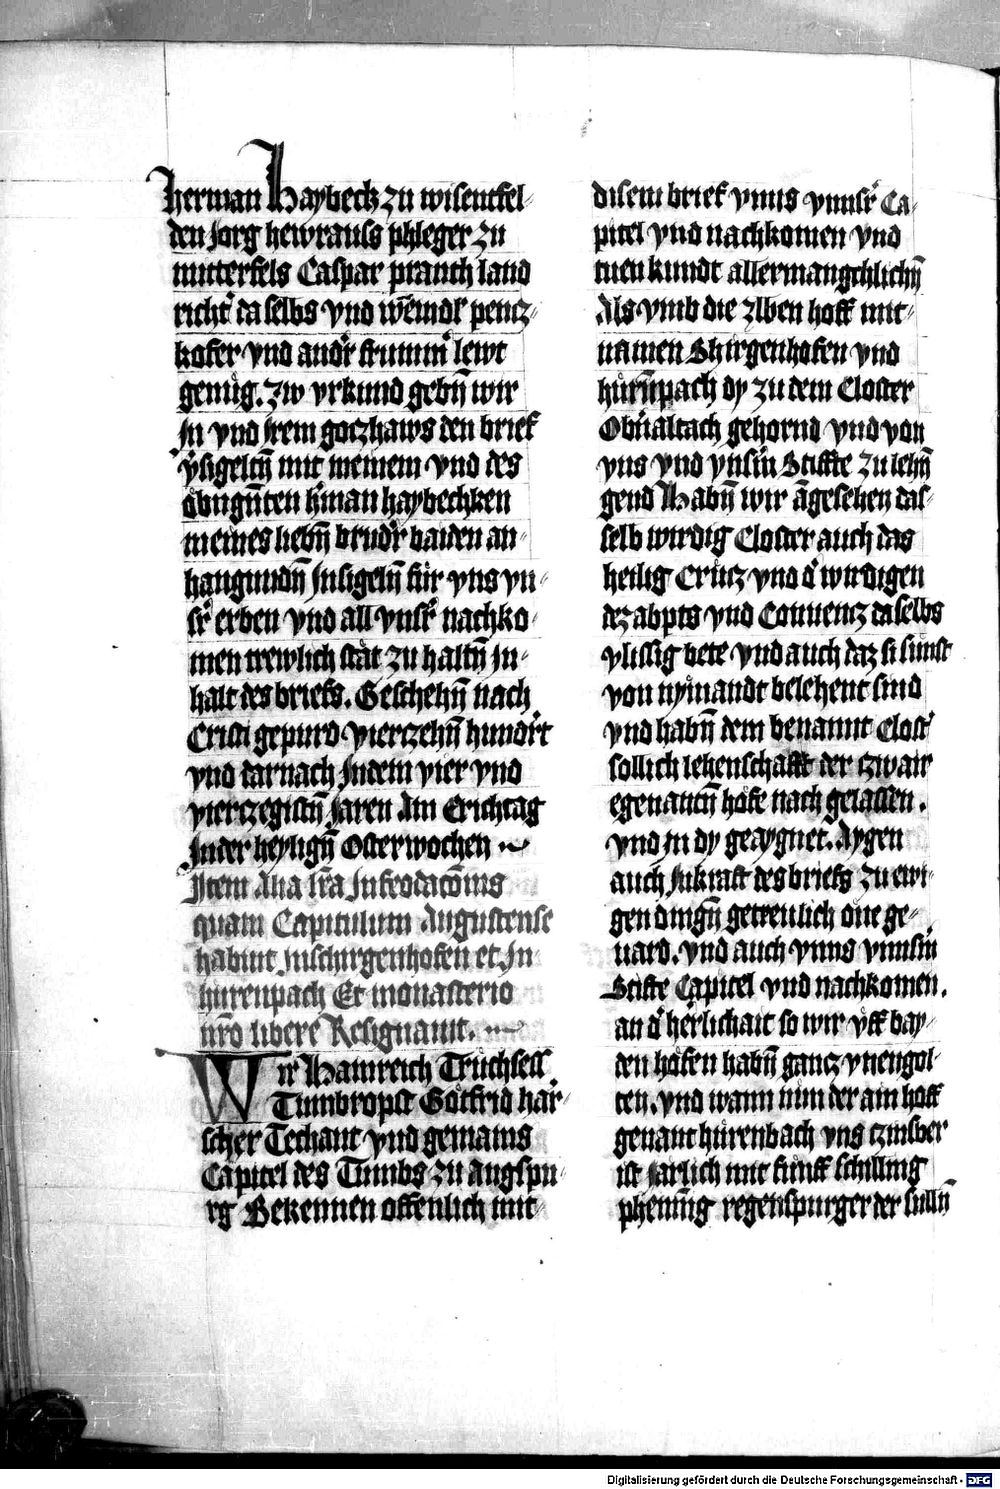 herman Haybeck zu wisentfel-
den Jorg hewrauss phleger zu
mitterfels Caspar pranth land
richt' daselbs vnd wēindl' pencz-
kofer vnd and'r frumm' lewt
genug. Zw vrkund gebn̄ wir
Jn vnd Jrem goczhaws den brief
v̈sigeltn̄ mit meinem vnd des
obngn̄ten h'man haybechken
meines liebn̄ brud'r baiden an-
hangundn̄ Jnsigeln̄ für vns vn-
sr' erben vnd all vnsr' nachko-
men trewlich stät zu haltn̄ Jn-
halt des briefs. Geschehn̄ nach
Cristi gepurd vierczehn̄ hund'rt
vnd darnach Jndem vier vnd
vierczegistn̄ Jaren Am Erichtag
Jnder heylign̄ Osterwochen
Jtem Alia l'ra Jnfeodac̄onis
quam Capitulum Augustense
habuit Jnschirgenhofen et Jn
hürenpach Et monasterio
nr̄o libere Resignauit.
Wir Hainreich Truchsess
Tumbropst Götfrid har-
scher Techant vnd gemains
Capitel des Tumbs zu augspu-
rg Bekennen offenlich mit
disem brief vnns vnnsr' Ca-
pitel vnd nachkomen vnd
tuen kundt allermangchlichn̄
Als vmb die zlben hoff mit-
namen Shirgenhofen vnd
hürn̄pach dy zu dem Closter
Obn̄altach gehornd vnd von
vns vnd vnsm̄ Stiffte zu lehn̄
gend Habn̄ wir āgesehen das-
selb wirdig Closter auch das
heilig Crücz vnd d' wirdigen
dez abpts vnd Conuencz daselbs
vlissig bete vnd auch daz si sunst
von nyınandt belehent sind
vnd habn̄ dem benannt Clost'
sollich lehenschafft der czwair
egenantn̄ höfe nach gelassen.
vnd Jn dy geaygnet. Aygen
auch Jnkraft des briefs zu ewi-
gen dingn̄ getreulich one ge-
uard. vnd auch vnns vnnsm̄
Stifte Capitel vnd nachkomen.
an d' herlichait so wir vff bay-
den höfen habn̄ gancz vnengol-
ten. vnd wann nun der ain hoff
genant hürenbach vns czinsber
ist Jarlich mit fünff schilling
phening regenspurger der sulln̄
Digitalisierung gefördert durch die Deutsche Forschungsgemeinschaft - DFG